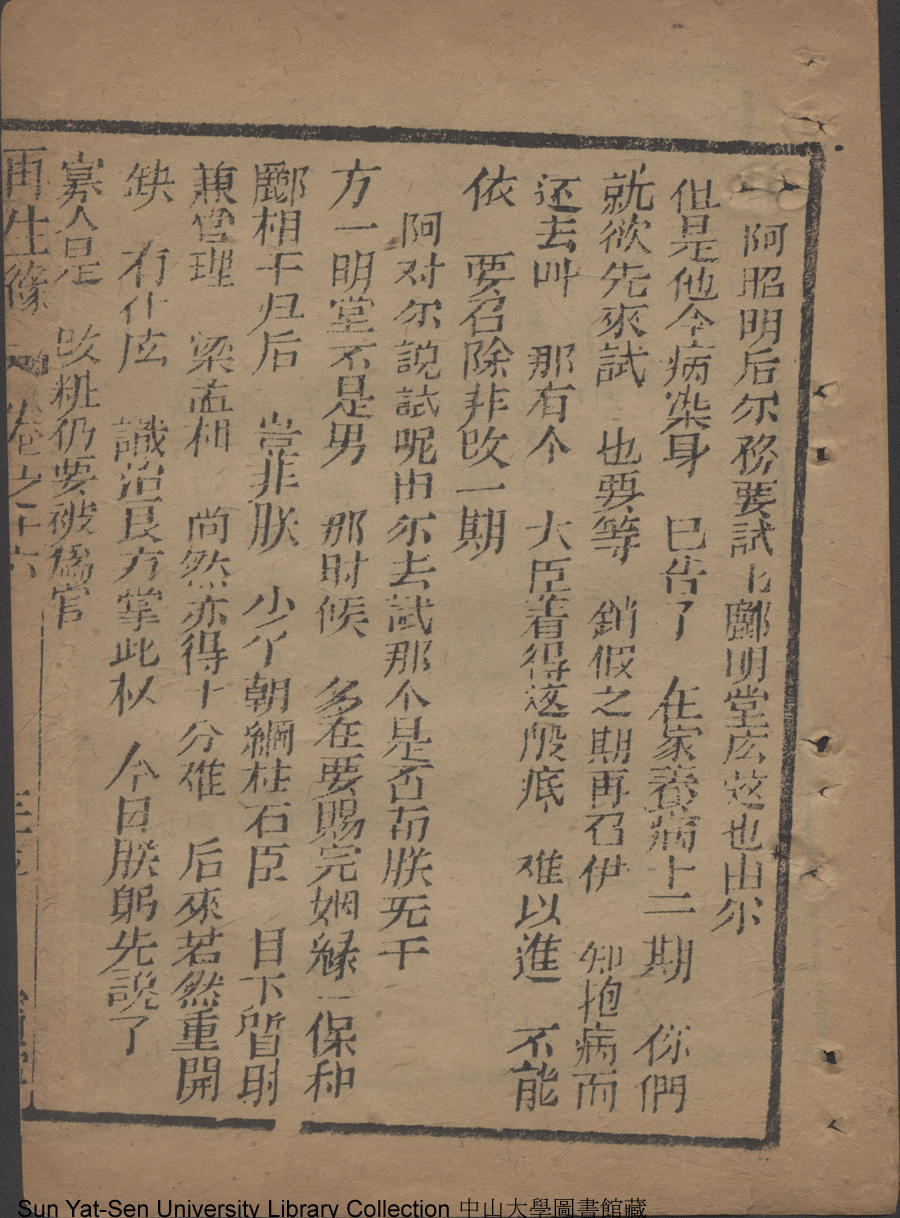 阿昭明后尔務要試 酈明堂庅这也由尔
但是他今病染身 已告了 在家養病十二期 你們
就欲先來試 也要等 銷假之期再召伊 知抱病而
还去叫 那有个 大臣着得这般底 难以進 不能
依 要召除非改一期
阿对尔說試呢由尔去試那个是否而朕无干
方一明堂不是男 那时候 多在要賜完姻緣一保和
酈相于归后 豈非朕 少个朝綱柱石臣 目下質財
兼管理 梁孟相 尚然亦得十分难 后來若然重開
缺 有什庅 識治良方掌此权 今日朕躬先說了
寡人是 改粧仍要被為官
再生緣 卷之十六
Sun Yat-Sen University Library Collection 中山大學圖書館藏